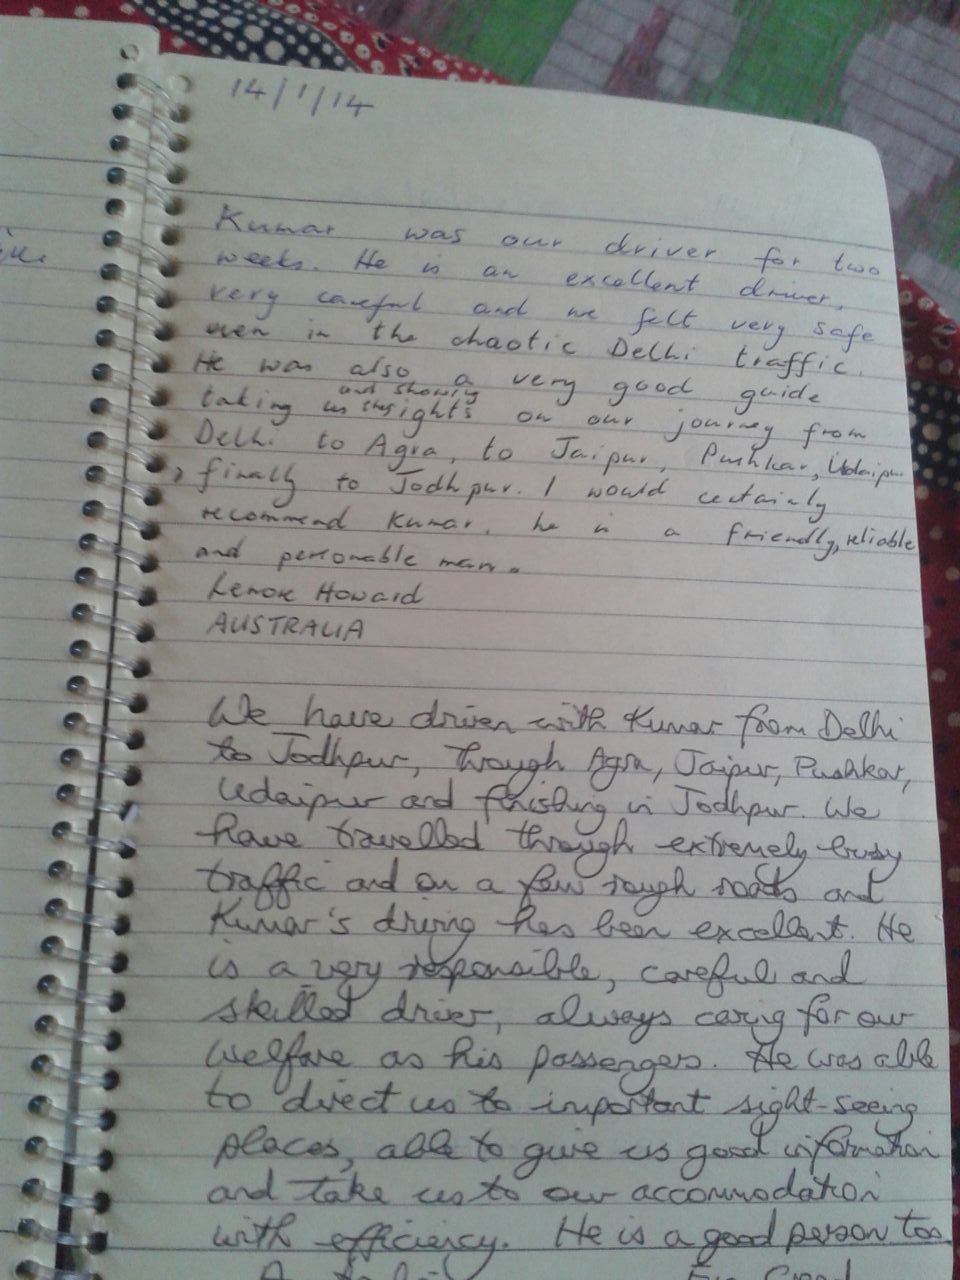 14/1/14
Kumar was our driver for two
weeks. He is an excellent driver,
very careful and we felt very safe
even in the chaotic Delhi traffic.
He was also a very good guide
and showing
taking us the sights on our journey from
Delhi to Agra, to Jaipur, Pushkar, Udaipur
, finally to Jodhpur. I would certainly
recommend Kumar, he is a friendly, reliable
and personable man.
Lenore Howard
AUSTRALIA
We have driven with Kumar from Delhi
to Jodhpur, through Agra, Jaipur, Pushkar,
Udaipur and finishing in Jodhpur. We
have travelled through extremely busy
traffic and on a few rough roads and
Kumar's driving has been excellent. He
is a very responsible, careful and
skilled driver, always caring for our
welfare as his passengers. He was able
to direct us to important sight-seeing
places, able to give us good information
and take us to our accommodation
with efficiency. He is a good person too